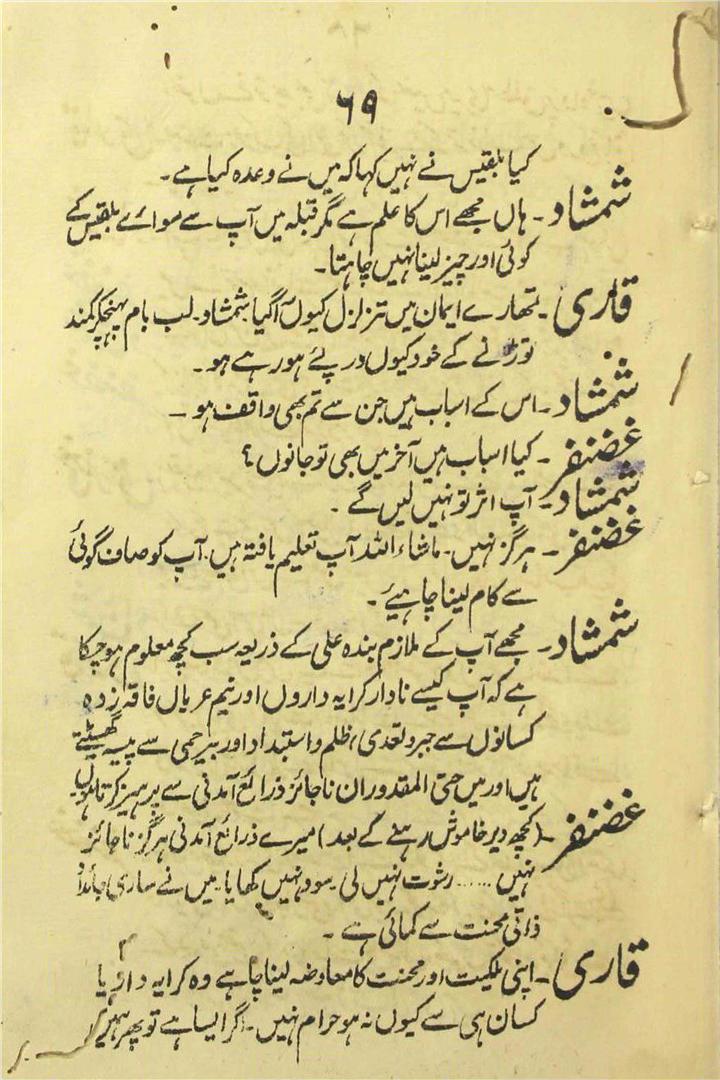 ۶۹
کیا بلقیس نے نہیں کہا کہ میں نے وعدہ کیا ہے۔
شمشاد۔ ہاں مجھے اس کا علم ہے مگر قبلہ میں آپ سے سوائے بلقیس کے
کوئی اور چیز لینا نہیں چاہتا۔
قاری۔ تمھارے ایمان میں تزلزل کیوں آگیا شمشاد۔ لب بام پہنچکر کمند
توڑنے کے خود کیوں درپئے ہو رہے ہو۔
شمشاد۔ اس کے اسباب ہیں جن سے تم بھی واقف ہو۔
غضنفر۔ کیا اسباب ہیں آخر میں بھی تو جانوں؟
شمشاد۔ آپ اثر تو نہیں لیں گے۔
غضنفر۔ ہرگز نہیں۔ ماشاءاللہ آپ تعلیم یافتہ ہیں۔ آپ کو صاف گوئی
سے کام لینا چاہیئے۔
شمشاد۔ مجھے آپ کے ملازم بندہ علی کے ذریعہ سب کچھ معلوم ہو چکا
ہے کہ آپ کیسے نادار کرایہ داروں اور نیم عریاں فاقہ زدہ
کسانوں سے جبر و تعدی، ظلم و استبداد اور بیرحمی سے پیسہ گھسیٹتے
ہیں اور میں حتی المقدور ان ناجائز ذرائع آمدنی سے پرہیز کرتا ہوں
غضنفر۔ (کچھ دیر خاموش رہنے کے بعد) میرے ذرائع آمدنی ہرگز ناجائز
نہیں ...... رشوت نہیں لی۔ سود نہیں کھایا۔ میں نے ساری جائداد
ذاتی محنت سے کمائی ہے۔
قاری۔ اپنی ملکیت اور محنت کا معاوضہ لینا چاہے وہ کرایہ دار یا
کسان ہی سے کیوں نہ ہو حرام نہیں۔ اگر ایسا ہے تو پھر